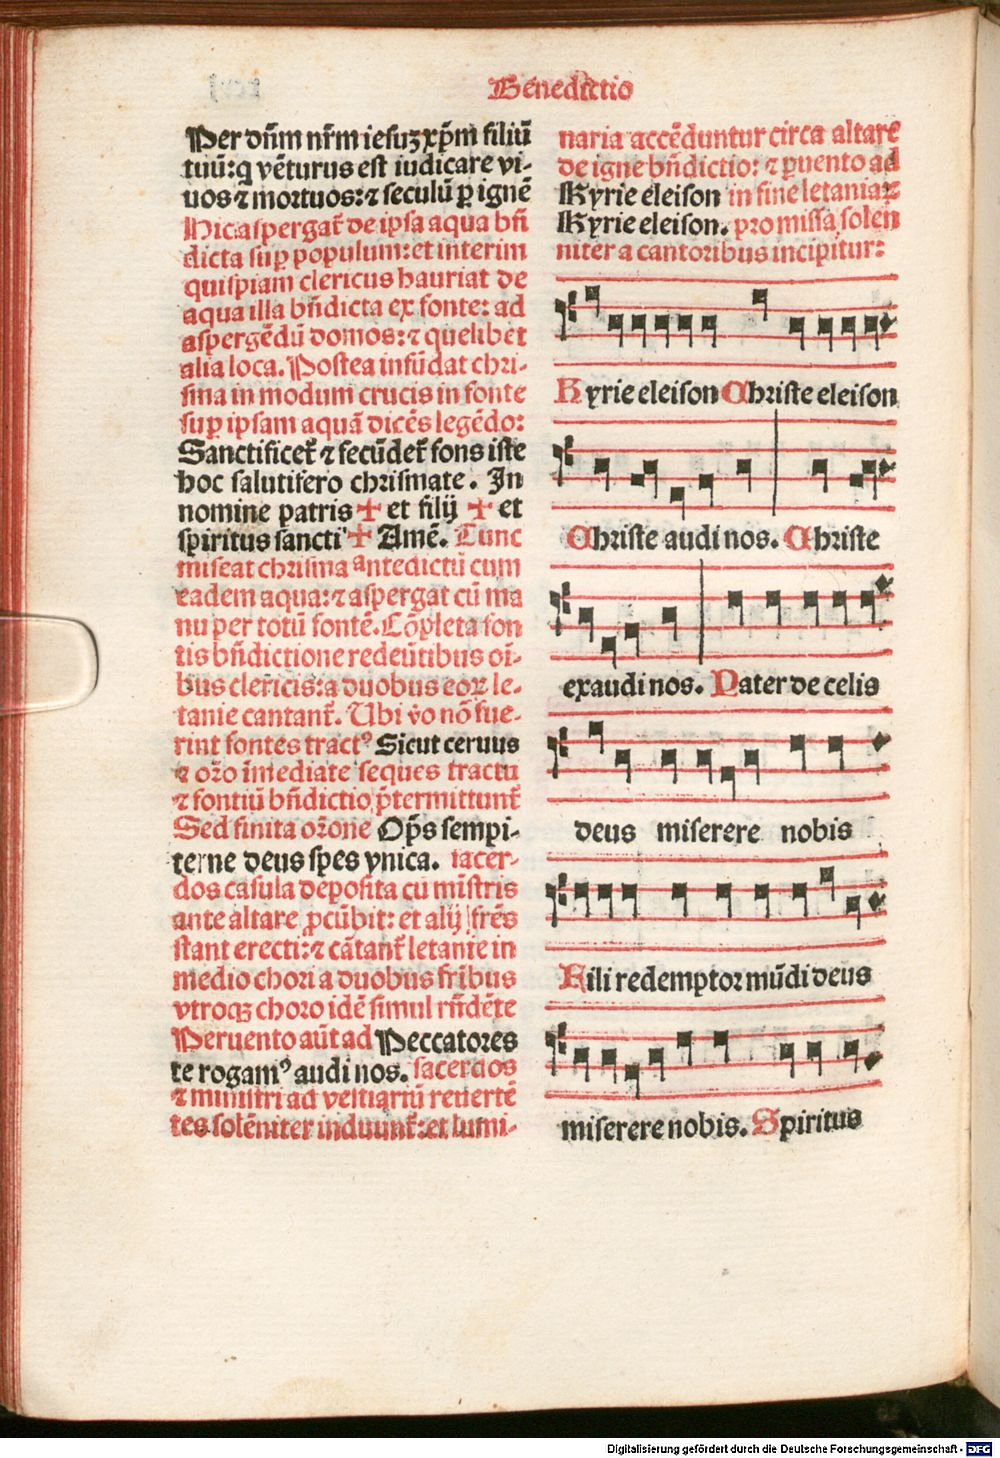 Benedictio
Per dn̄m nr̄m iesuꝫ xp̄m filiū
tuū: q vēturus est iudicare vi-
uos ⁊ mortuos: ⁊ seculū ꝑ ignē
Hic aspergat̄ de ipsa aqua bn̄
dicta sup̄ populum: et interim
quispiam clericus hauriat de
aqua illa bn̄dicta ex fonte: ad
aspergēdū domos: ⁊ quelibet
alia loca. Postea infūdat chri-
sma in modum crucis in fonte
sup̄ ipsam aquā dicēs legēdo:
Sanctificet̄ ⁊ fecūdet̄ fons iste
hoc salutifero chrismate. In
nomine patris ✠ et filij ✠ et
spiritus sancti ✠ Amē. Tunc
misceat chrisma antedictū cum
eadem aqua: ⁊ aspergat cū ma
nu per totū fontē. Cōpleta fon
tis bn̄dictione redeūtibus oī-
bus clericis: a duobus eoꝝ le-
tanie cantant̄. Ubi v̄o nō fue-
rint fontes tractꝰ Sicut ceruus
⁊ or̄o īmediate seques tractū
⁊ fontiū bn̄dictio p̄termittunt̄
Sed finita or̄one Op̄s sempi-
terne deus spes vnica. sacer-
dos casula deposita cū mīstris
ante altare ꝓcūbit: et alij fr̄es
stant erecti: ⁊ cātant̄ letanie in
medio chori a duobus fribus
vtroqꝫ choro idē simul rn̄dēte
Peruento aūt ad Peccatores
te rogamꝰ audi nos. sacerdos
⁊ ministri ad vestiariū reuertē
tes solēniter induunt̄: et lumi-
naria accēduntur circa altare
de igne bn̄dictio: ⁊ ꝑuento ad
Kyrie eleison in fine letaniaꝝ
Kyrie eleison. pro missa solen
niter a cantoribus incipitur:
Kyrie eleison Christe eleison
Christe audi nos. Christe
exaudi nos. Pater de celis
deus miserere nobis
Fili redemptor mūdi deus
miserere nobis. Spiritus
Digitalisierung gefördert durch die Deutsche Forschungsgemeinschaft - DFG